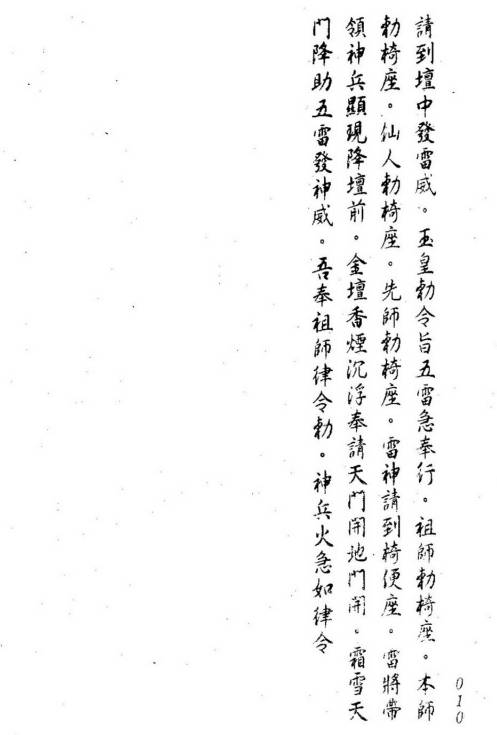 請到壇中發雷威。玉皇勅令旨五雷急奉行。祖師勅椅座。本師
勅椅座。仙人勅椅座。先師勅椅座。雷神請到椅便座。雷將帶
領神兵顯現降壇前。金壇香煙沉浮奉請天門開地門開。霜雪天
門降助五雷發神威。吾奉祖師律令勅。神兵火急如律令
010